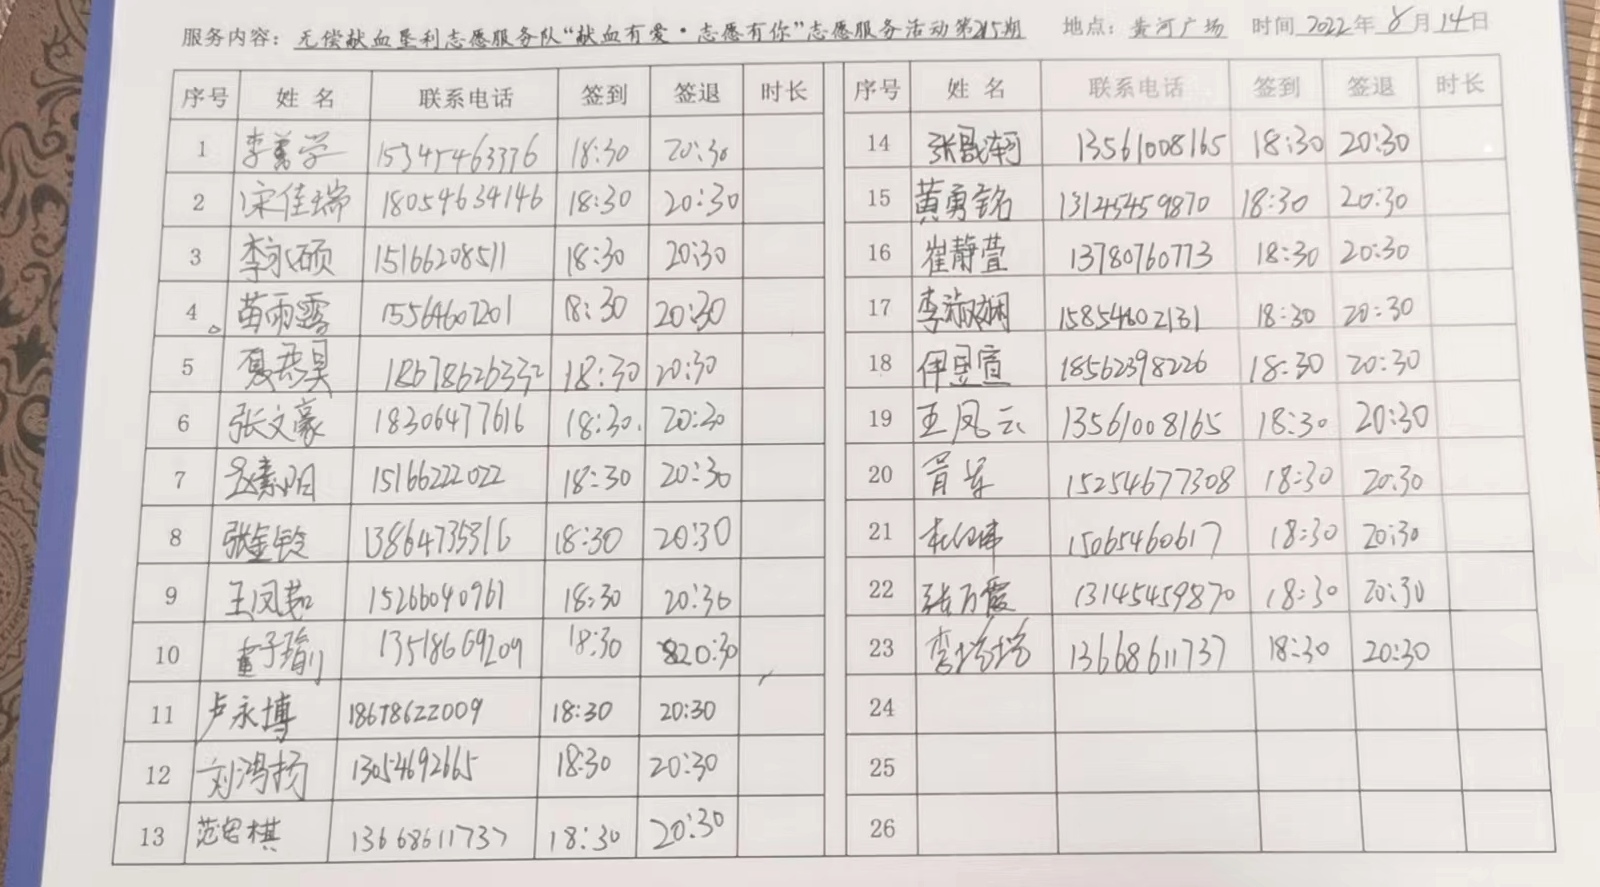 服务内容：无偿献血垦利志愿服务队“献血有爱·志愿有你”志愿服务活动第215期 地点：黄河广场 时间 2022年 8月 14日
序号 姓名 联系电话 签到 签退 时长 序号 姓名 联系电话 签到 签退 时长
1 李美学 15345463336 18:30 20:30 14 张晟轲 13561008165 18:30 20:30
2 宋佳瑞 18054634146 18:30 20:30 15 黄勇铭 13145459870 18:30 20:30
3 李永硕 15166208511 18:30 20:30 16 崔静萱 13780760773 18:30 20:30
4 苗雨露 15564607201 18:30 20:30 17 李淑娴 15854602131 18:30 20:30
5 夏君昊 18678626332 18:30 20:30 18 伊昱宣 18562398226 18:30 20:30
6 张文豪 18306477616 18:30 20:30 19 王凤云 13561008165 18:30 20:30
7 15166222022 18:30 20:30 20 胥军 15254677308 18:30 20:30
8 张金铃 13864735316 18:30 20:30 21 15065460617 18:30 20:30
9 王凤茹 15266040961 18:30 20:30 22 张万霞 13145459870 18:30 20:30
10 董子瑜 13518669209 18:30 20:30 23 李培培 13668611737 18:30 20:30
11 卢永博 18678622009 18:30 20:30 24
12 刘鸿扬 13054692665 18:30 20:30 25
13 范思棋 13668611737 18:30 20:30 26